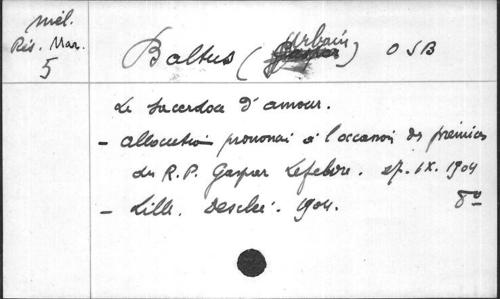 Mél.
Rés. Mar.
5
Baltus (Urbain) OSB
Le sacerdoce d'amour.
- allocution prononcé à l'occasion des prémices
du R.P. Gaspar Lefebvre. 1904
- Lille. Desclée. 1904. 8°